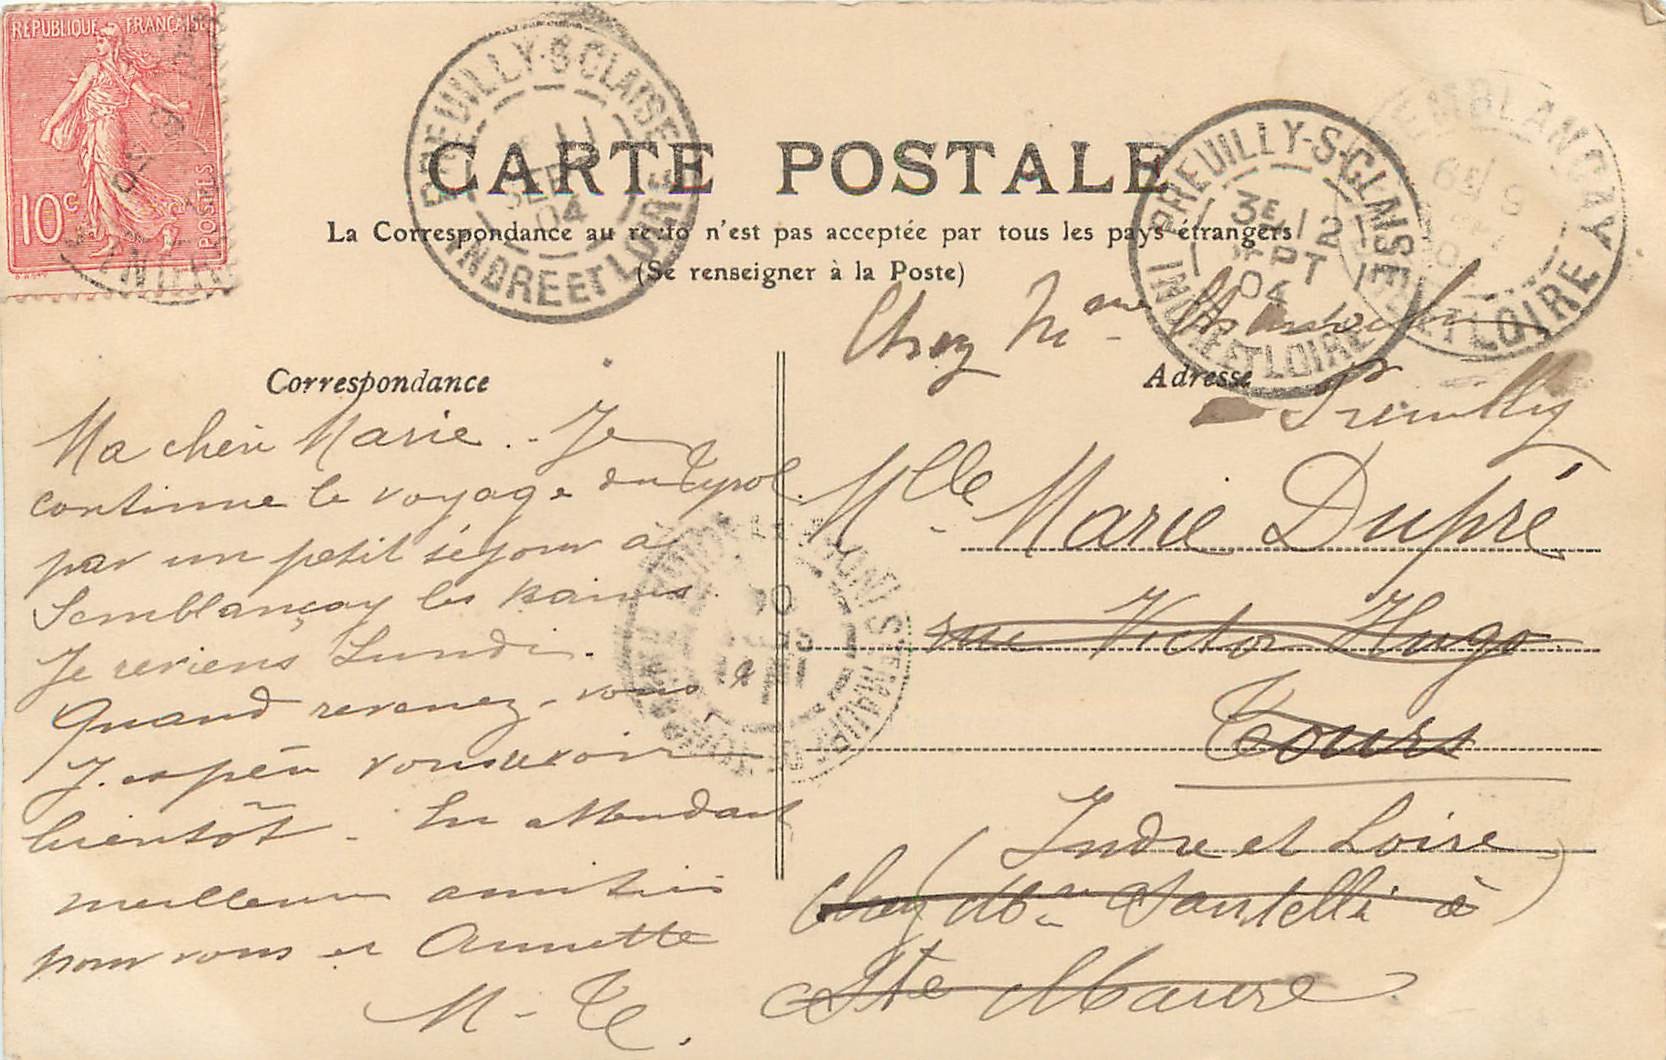 RÉPUBLIQUE FRANÇAISE
10c
POSTES
PREUILLY-S-CLAISE
SEPT
04
INDRE ET LOIRE
CARTE POSTALE
La Correspondance au recto n'est pas acceptée par tous les pays étrangers
(Se renseigner à la Poste)
PREUILLY-S-CLAISE
3E 12
SEPT
04
INDRE ET LOIRE
SEMBLANCAY
ET LOIRE
Correspondance
Ma chère Marie. - Je
continue le voyage du Tyrol
par un petit séjour à
Semblançay les Bains.
Je reviens Lundi.
Quand revenez-vous ?
J'espère vous revoir
bientôt. En attendant
meilleures amitiés
pour vous et Annette
M-T.
STE MAURE
04
Adresse
Chez Mme
Preuilly
Mlle Marie Dupré
rue Victor Hugo
Tours
Indre et Loire
Chez (Mme Santelli à)
Ste Maure